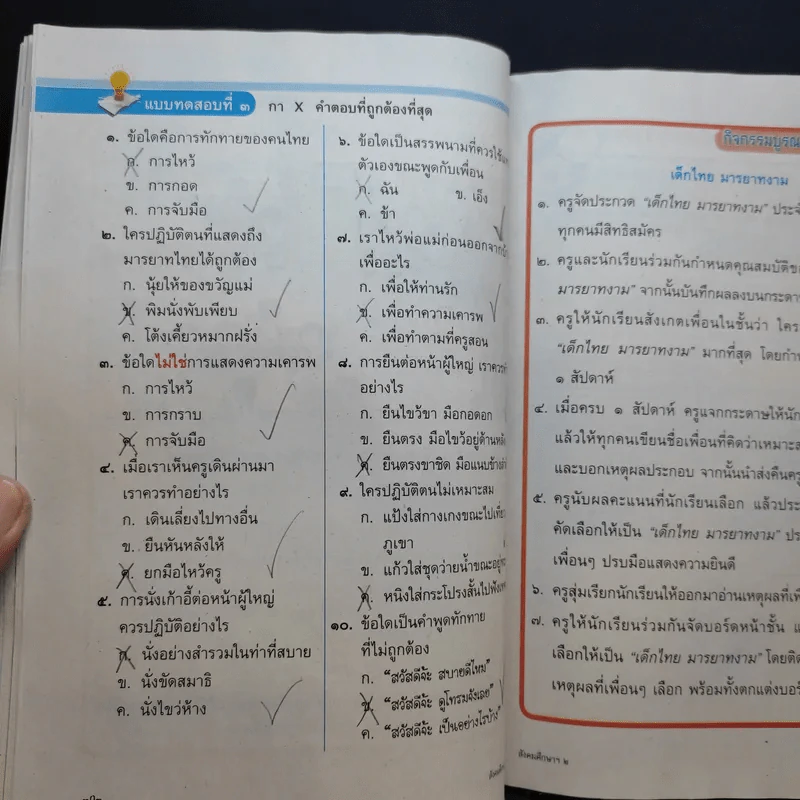 แบบทดสอบที่ ๓ กา X คำตอบที่ถูกต้องที่สุด
๑. ข้อใดคือการทักทายของคนไทย
ก. การไหว้
ข. การกอด
ค. การจับมือ
๒. ใครปฏิบัติตนที่แสดงถึง
มารยาทไทยได้ถูกต้อง
ก. นุ้ยให้ของขวัญแม่
ข. พิมนั่งพับเพียบ
ค. โต้งเคี้ยวหมากฝรั่ง
๓. ข้อใดไม่ใช่การแสดงความเคารพ
ก. การไหว้
ข. การกราบ
ค. การจับมือ
๔. เมื่อเราเห็นครูเดินผ่านมา
เราควรทำอย่างไร
ก. เดินเลี่ยงไปทางอื่น
ข. ยืนหันหลังให้
ค. ยกมือไหว้ครู
๕. การนั่งเก้าอี้ต่อหน้าผู้ใหญ่
ควรปฏิบัติอย่างไร
ก. นั่งอย่างสำรวมในท่าที่สบาย
ข. นั่งขัดสมาธิ
ค. นั่งไขว่ห้าง
๖. ข้อใดเป็นสรรพนามที่ควรใช้
ตัวเองขณะพูดกับเพื่อน
ก. ฉัน ข. เอ็ง
ค. ข้า
๗. เราไหว้พ่อแม่ก่อนออกจาก
เพื่ออะไร
ก. เพื่อให้ท่านรัก
ข. เพื่อทำความเคารพ
ค. เพื่อทำตามที่ครูสอน
๘. การยืนต่อหน้าผู้ใหญ่ เราควร
อย่างไร
ก. ยืนไขว้ขา มือกอดอก
ข. ยืนตรง มือไขว้อยู่ด้านหลัง
ค. ยืนตรงขาชิด มือแนบข้าง
๙. ใครปฏิบัติตนไม่เหมาะสม
ก. แป้งใส่กางเกงขณะไปเที่ยว
ภูเขา
ข. แก้วใส่ชุดว่ายน้ำขณะอยู่
ค. หนิงใส่กระโปรงสั้นไปฟัง
๑๐. ข้อใดเป็นคำพูดทักทาย
ที่ไม่ถูกต้อง
ก. “สวัสดีจ้ะ สบายดีไหม”
ข. “สวัสดีจ้ะ ดูโทรมจังเลย”
ค. “สวัสดีจ้ะ เป็นอย่างไรบ้าง”
กิจกรรมบูรณ
เด็กไทย มารยาทงาม
๑. ครูจัดประกวด “เด็กไทย มารยาทงาม” ประจำ
ทุกคนมีสิทธิสมัคร
๒. ครูและนักเรียนร่วมกันกำหนดคุณสมบัติ
มารยาทงาม” จากนั้นบันทึกผลลงบนกระดาษ
๓. ครูให้นักเรียนสังเกตเพื่อนในชั้นว่า ใคร
“เด็กไทย มารยาทงาม” มากที่สุด โดย
๑ สัปดาห์
๔. เมื่อครบ ๑ สัปดาห์ ครูแจกกระดาษให้
แล้วให้ทุกคนเขียนชื่อเพื่อนที่คิดว่าเหมาะ
และบอกเหตุผลประกอบ จากนั้นนำส่งคืนครู
๕. ครูนับผลคะแนนที่นักเรียนเลือก แล้ว
คัดเลือกให้เป็น “เด็กไทย มารยาทงาม”
เพื่อนๆ ปรบมือแสดงความยินดี
๖. ครูสุ่มเรียกนักเรียนให้ออกมาอ่านเหตุผลที่
๗. ครูให้นักเรียนร่วมกันจัดบอร์ดหน้าชั้น
เลือกให้เป็น “เด็กไทย มารยาทงาม” โดย
เหตุผลที่เพื่อนๆ เลือก พร้อมทั้งตกแต่ง
สังคมศึกษาฯ ๒